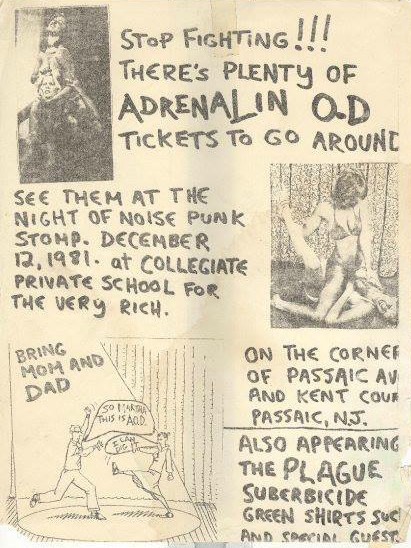 STOP FIGHTING!!!
THERE'S PLENTY OF
ADRENALIN O.D
TICKETS TO GO AROUND
SEE THEM AT THE
NIGHT OF NOISE PUNK
STOMP. DECEMBER
12, 1981. at COLLEGIATE
PRIVATE SCHOOL FOR
THE VERY RICH.
BRING
MOM AND
DAD
SO MARTHA
THIS IS A.O.D.
I CAN
DIG IT
ON THE CORNER
OF PASSAIC AV
AND KENT COUR
PASSAIC, N.J.
ALSO APPEARING
THE PLAGUE
SUBERBICIDE
GREEN SHIRTS SUC
AND SPECIAL GUEST